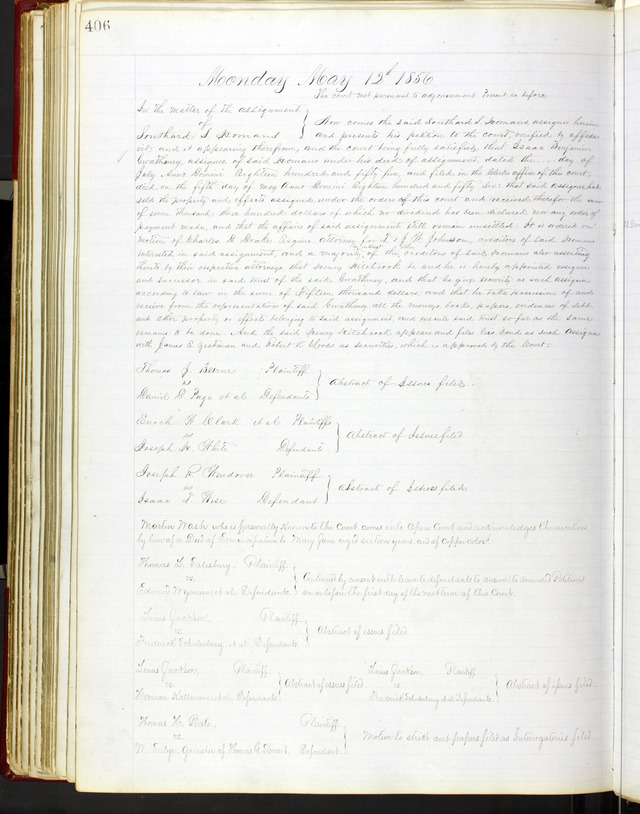 406
Monday May 12th 1856
The court met pursuant to adjournment Present as before
In the matter of the assignment
of
Southard T. Yeomans
Now comes the said Southard T. Yeomans assignor herein
and presents his petition to the court, verified by affida-
vit; and it appearing therefrom, and the court being fully satisfied, that Isaac Benjamin
Gwathmey, assignee of said Yeomans under his deed of assignment dated the .... day of
July Anno Domini Eighteen hundred and fifty five, and filed in the clerks office of this court,
died on the fifth day of May Anno Domini Eighteen hundred and fifty six: that said assignee had
sold the property and effects assigned under the orders of this court and received therefor the sum
of seven thousand three hundred dollars of which no dividend has been declared nor any order of
payment made, and that the affairs of said assignment still remain unsettled. It is ordered on
motion of Charles D. Esquire attorney for J. & J. H. Johnson, creditors of said Yeomans
interested in said assignment, and a majority of the creditors of said Yeomans also assenting
thereto by their respective attorneys, that Henry Hitchcock be and he is hereby appointed assignee
and successor in said trust of the said Gwathmey, and that he give security as such assignee
according to law in the sum of Fifteen thousand dollars, and that he take possession of and
receive from the representatives of said Gwathmey all the moneys, books, papers, evidences of debt
and other property or effects belonging to said assignment, and execute said trust so far as the same
remains to be done. And the said Henry Hitchcock appears and files his bond as such Assignee
with James E. Yeatman and Robert K. Woods as securities, which is approved by the Court.
Thomas J. Barnes Plaintiff
vs
Daniel D. Page et al Defendants
Abstract of Issues filed.
Enoch W. Clark et al Plaintiffs
vs
Joseph W. White Defendants
Abstract of Issues filed
Joseph R. Windover Plaintiff
vs
Isaac T. Wise Defendant
Abstract of Issues filed
Martin Wash who is personally known to the Court, comes into Open Court and acknowledges the execution
by him of a Deed of Emancipation to Mary Jane aged sixteen years and of copper color.
Thomas L. Salisbury, Plaintiff,
vs.
Edward Wyman et al. Defendants
Continued by consent with leave to defendants to answer to amended Petition
on or before the first day of the next term of this Court.
Linus Jackson, Plaintiff
vs.
Frederick Schulenburg et al Defendants
Abstract of issues filed.
Linus Jackson, Plaintiff
vs.
Herman Kallmann et al Defendants
Abstract of issues filed.
Linus Jackson Plaintiff
vs.
Frederick Schulenburg et al Defendants.
Abstract of issues filed.
Thomas H. Bate, Plaintiff
vs.
W. Garnishee of Thomas G. Stewart, Defendant
Motion to strike out papers filed as Interrogatories filed.